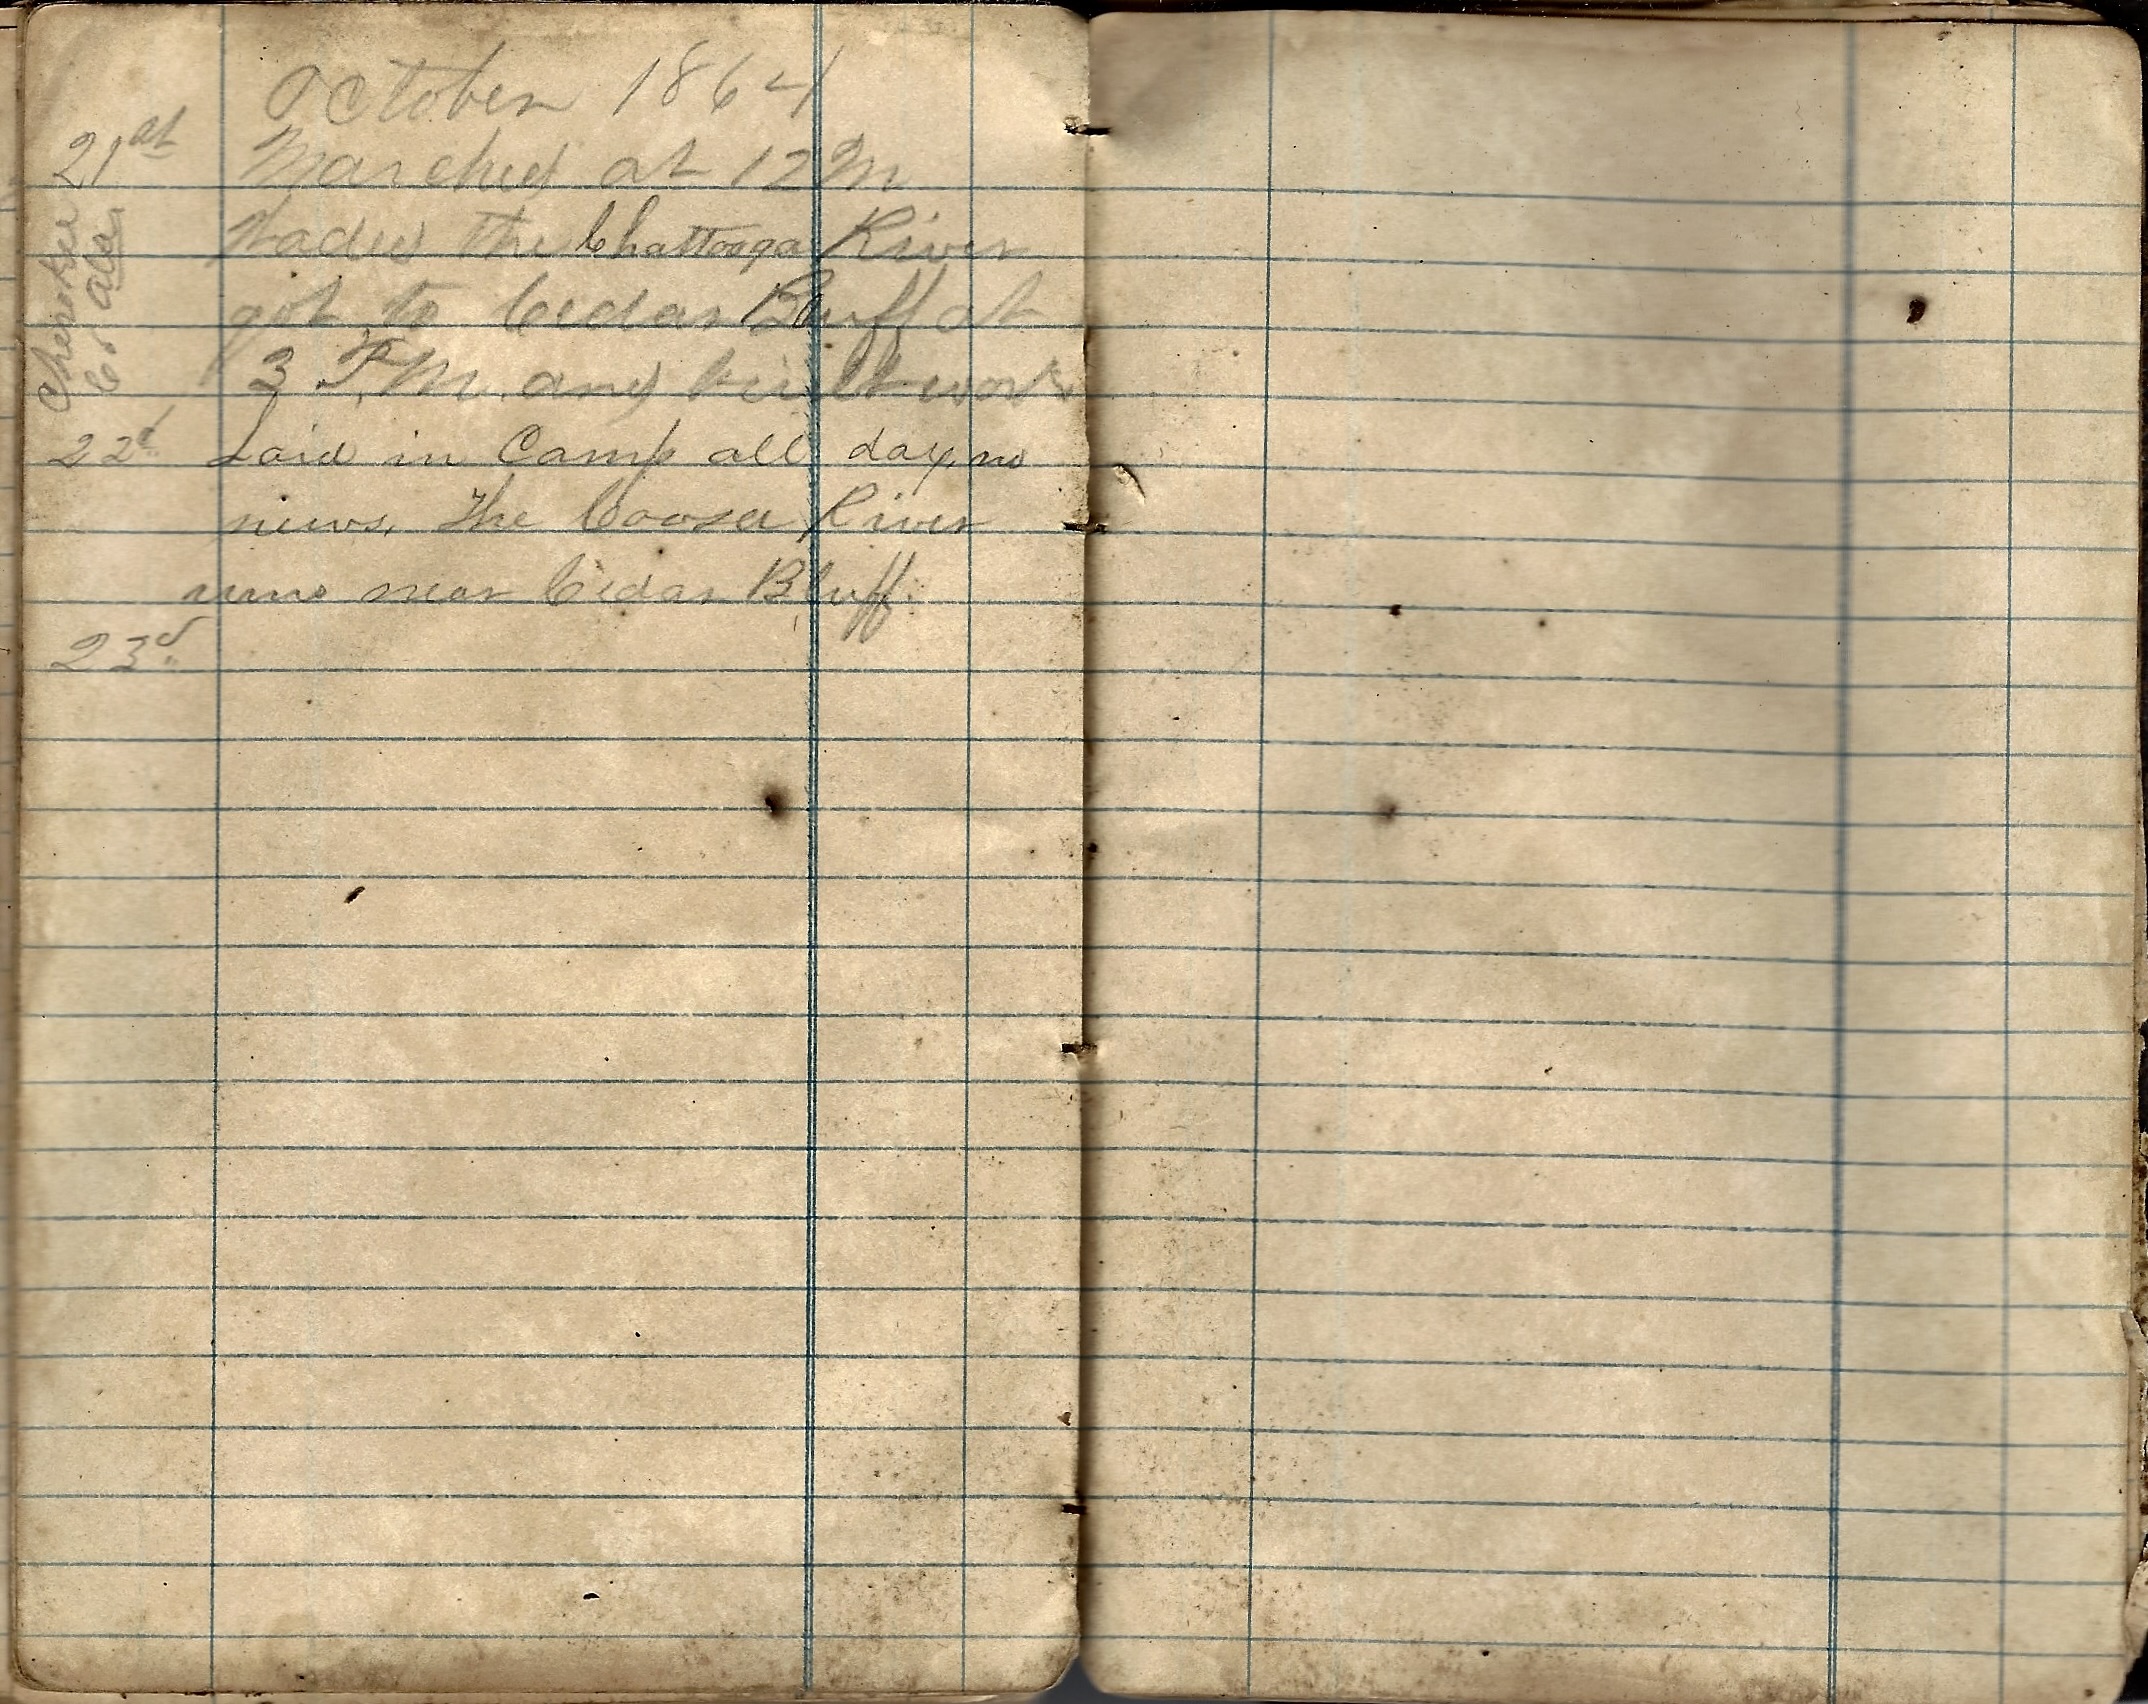 October 1864
21st Marched at 12 M
Waded the Chattooga River
got to Cedar Bluff at
3 P.M. and built works
Cherokee
Co, Ala
22d Laid in Camp all day, no
news. The Coosa River
runs near Cedar Bluff.
23d